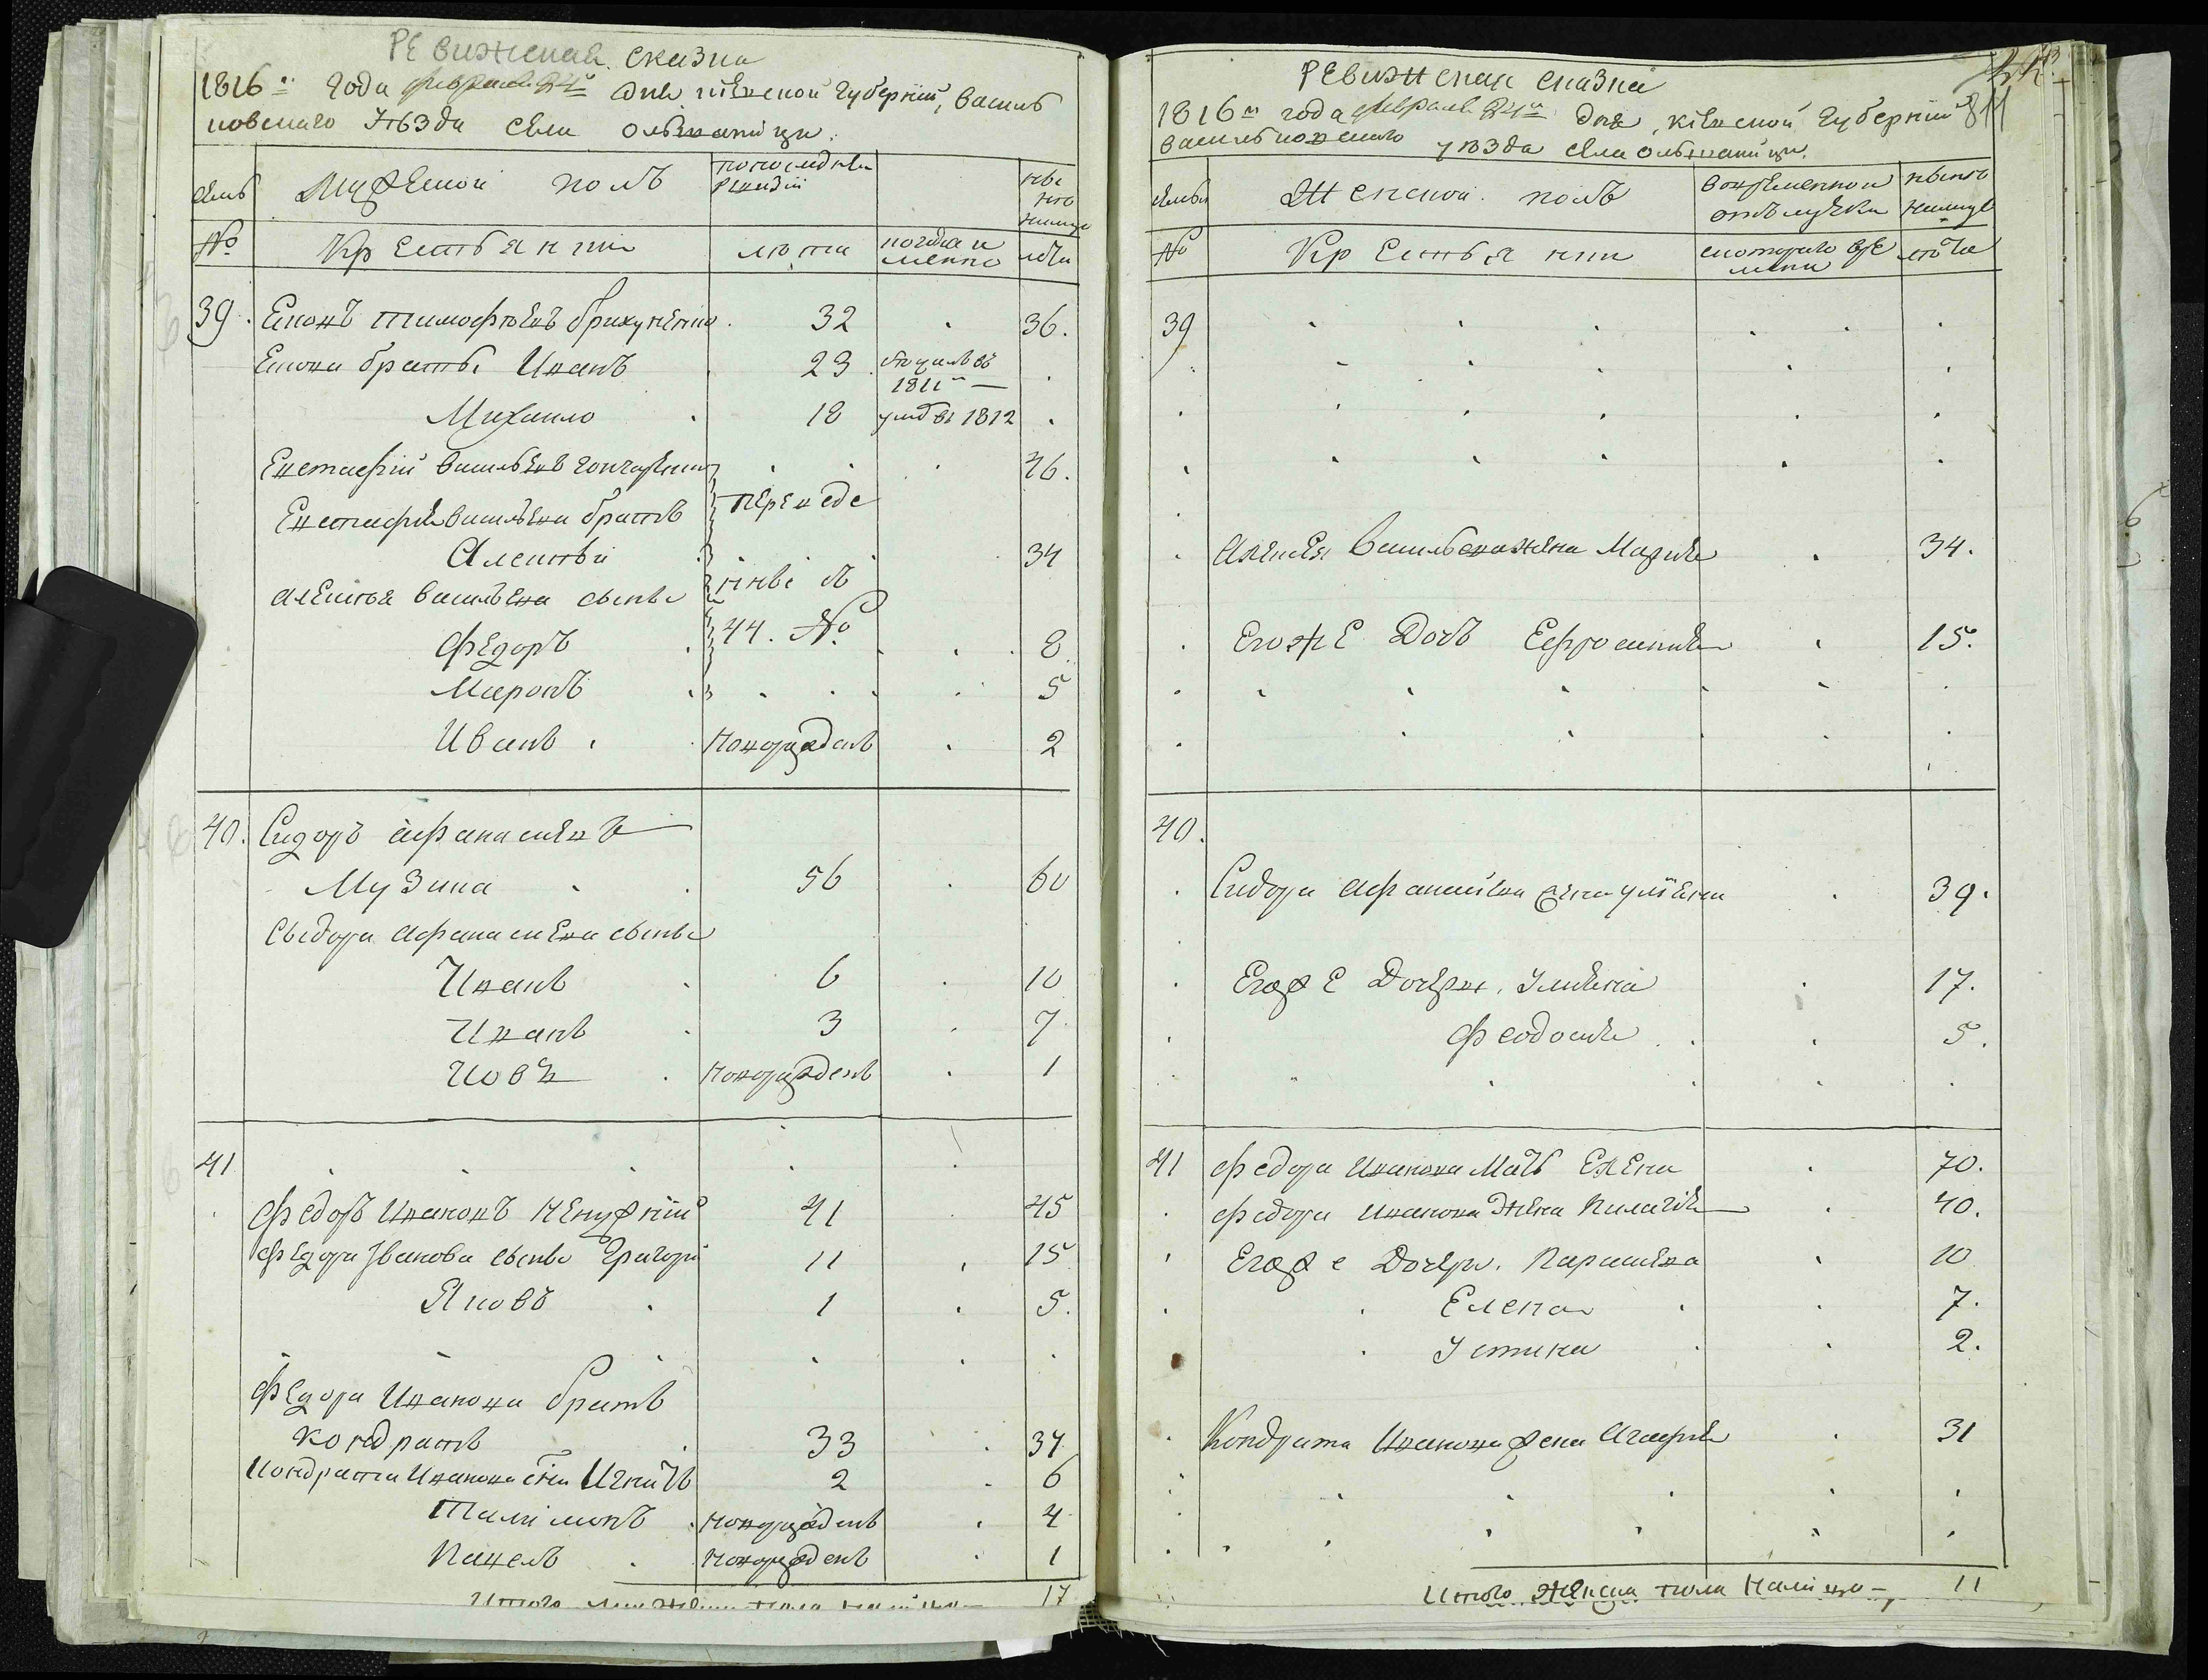 РЕвижская сказка
1816го года февраля 24го дня кіевской губерніи, василь
ковского уѣзда села ольшаници.
семь мужеской полъ попослѣдней ревизіи нынѣ налицо
№ крестьянни лѣта когда именно лѣта
39. Яковъ тимофѣевъ брихуненко. 32 36.
Якова братья Иванъ 23 въ 1811м
Михайло 18 умре въ 1812
Евстафій васильевъ гончаренко 46.
Евстафія васильева братъ переведе
Алексѣй 34
Алексѣя васильева сынъ нны въ
Федоръ 44. № 8
Миронъ 5
Иванъ новорожденъ 2
40. Сидоръ афанасиевъ
Музика 56 60
Сыдора афанасиева сынъ
Иванъ 6 10
Иванъ 3 7
Иовъ новорожденъ 1
41
федоръ Ивановъ 41 45
федора Иванова сынъ григорій 11 15
Яковъ 1 5.
федора Иванова братъ
кондратъ 33 37
кондрата Иванова сни Игнатъ 2 6
Талимонъ новорожденъ 4
Павелъ новорожденъ 1
Итого мужеска пола налицо — 17
РЕвижская сказка
811
1816го года февраля 24го дня, кіевской губерніи
васильковского уѣзда села ольшаници.
семьи Женской полъ во временной отлучке нынѣ налицѣ
№ крестьянни скоторого времени лѣта
39
Алексея васильева жена Мария 34.
Егоже дочь Ефросиния 15.
40.
Сидора афанасиева жена улияна 39.
Егоже дочери. Улияна 17.
феодосия 5.
41 федора Иванова мать Елена 70.
федора Иванова жена Пилагия 40.
Егоже дочери. Парасква 10
Елена 7.
Устина 2.
Кондрата Иванова жена Агафия 31
Итого женска пола налицо — 11